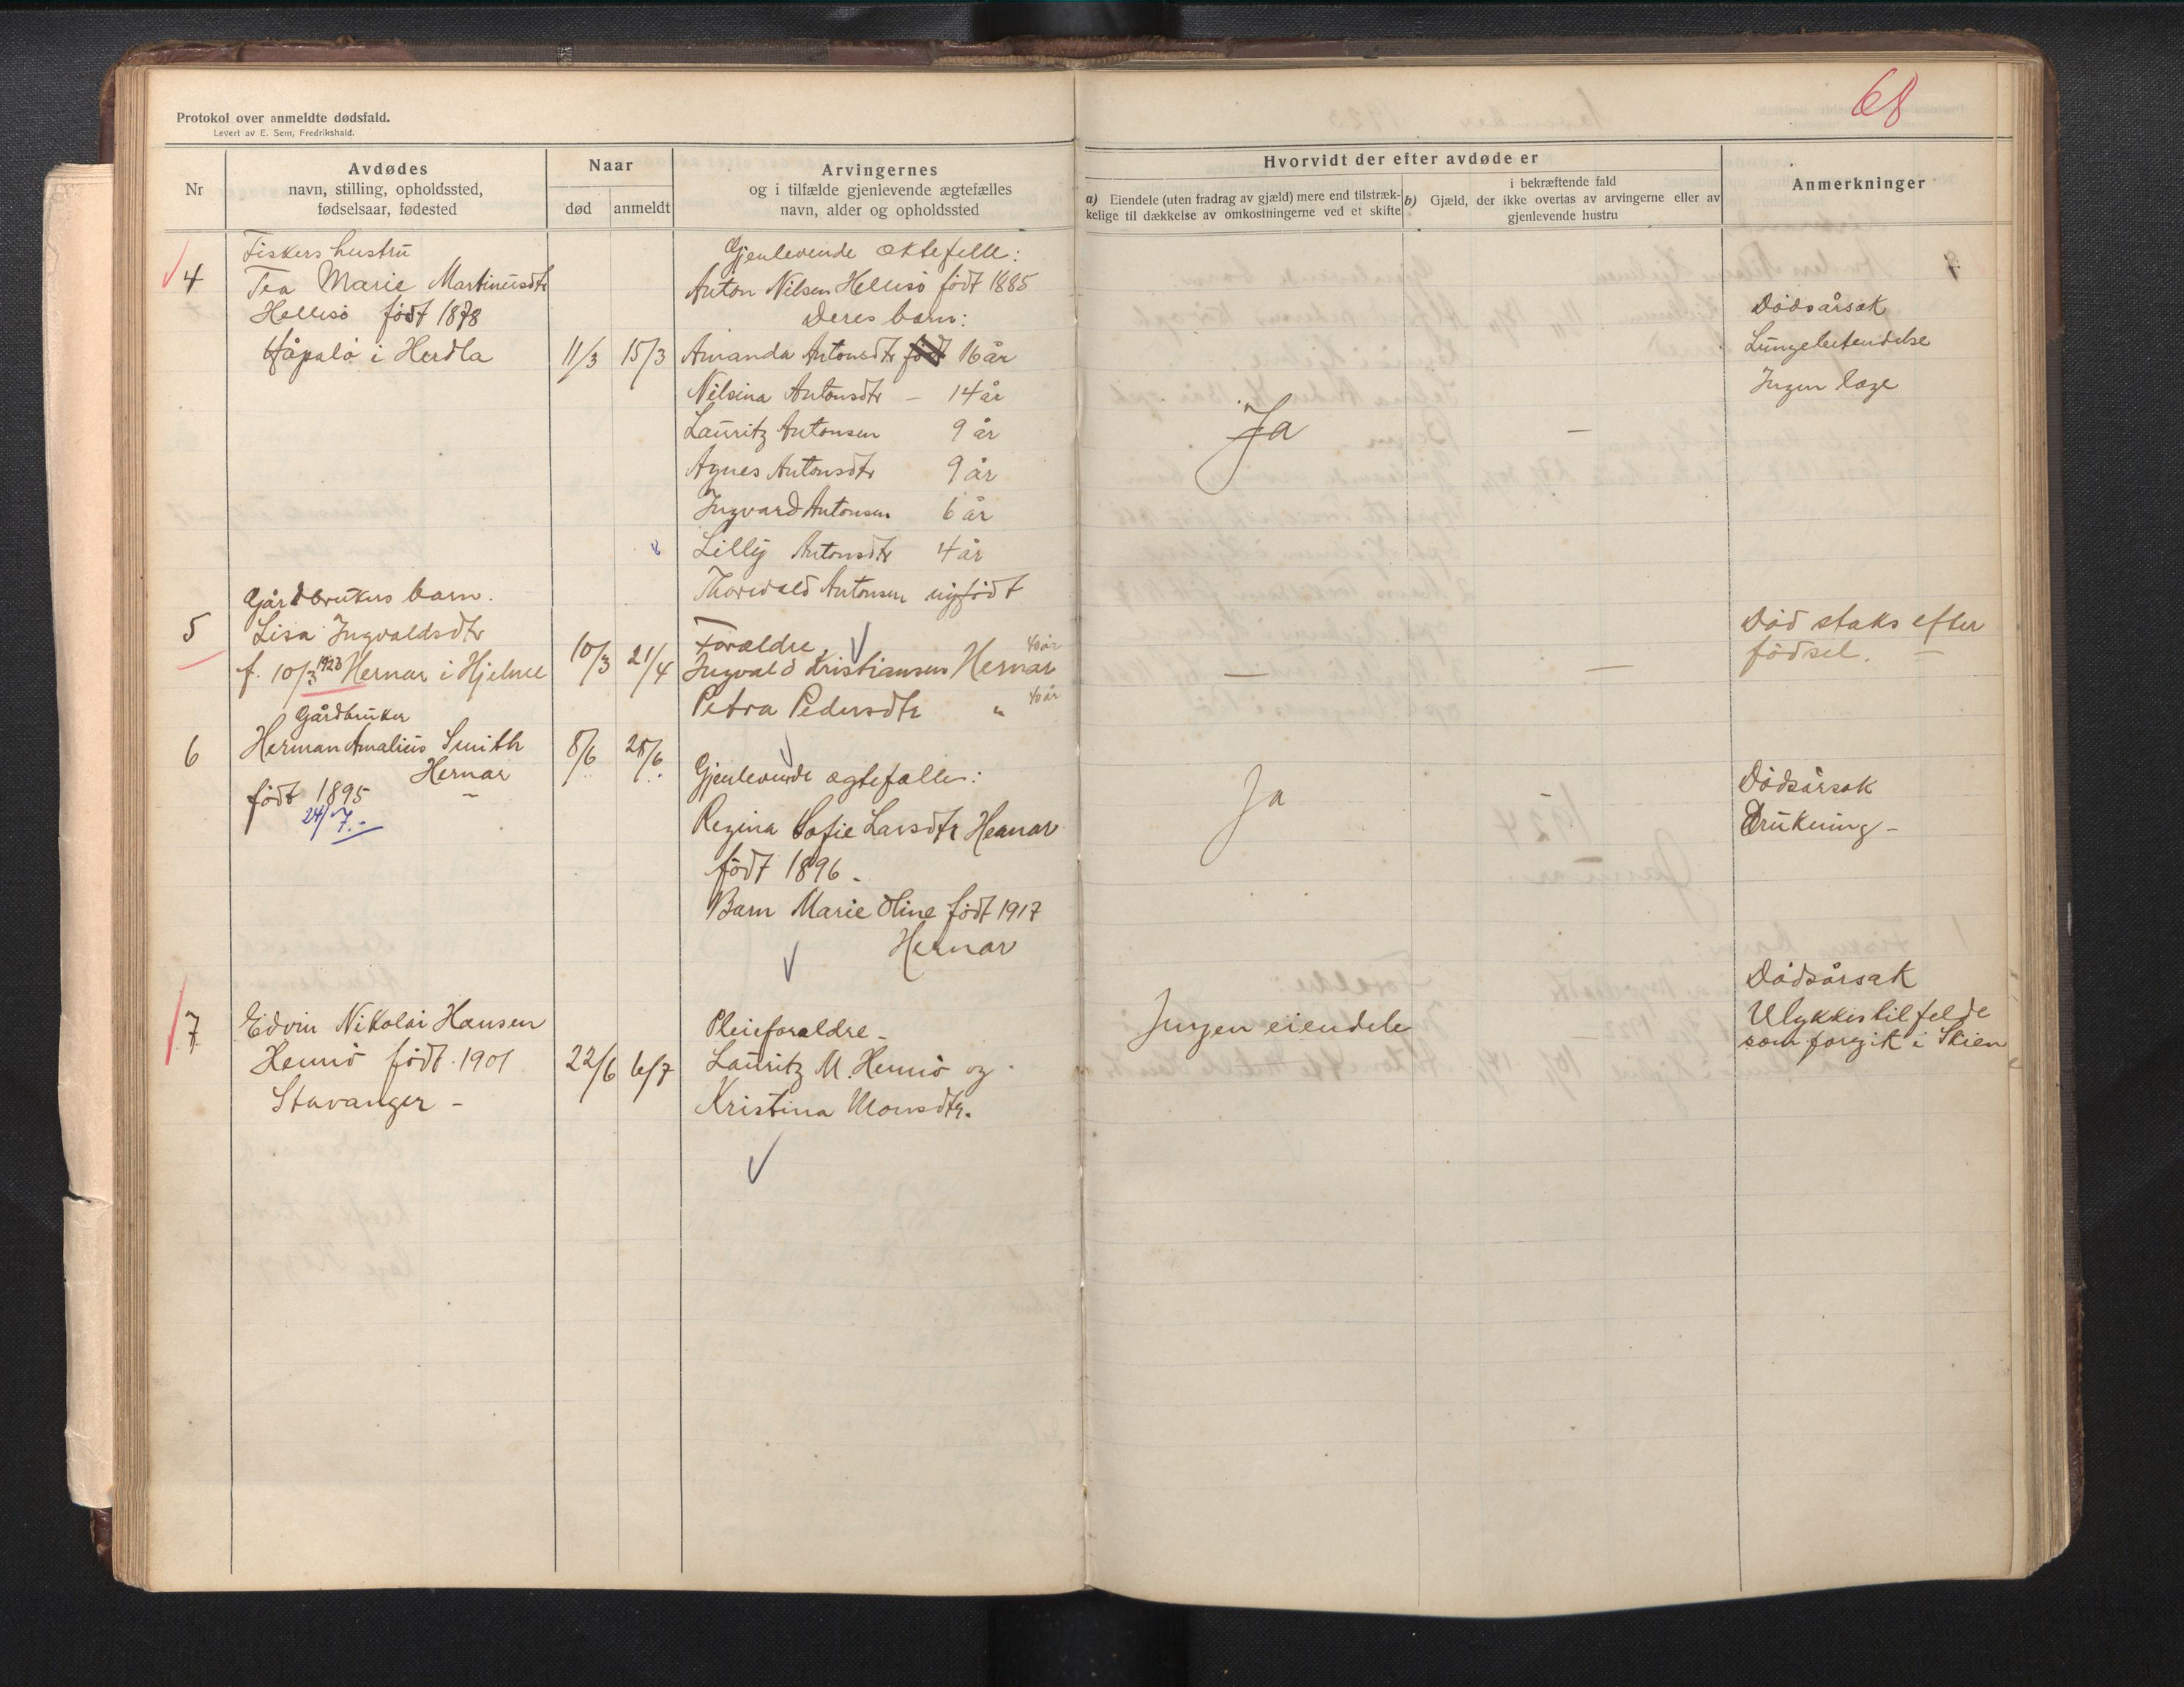 Protokol over anmeldte dødsfald.
Levert av E. Sem, Fredrikshald.
68
Nr
Avdødes
navn, stilling, opholdssted,
fødselsaar, fødested
Naar
død
anmeldt
Arvingernes
og i tilfælde gjenlevende ægtefælles
navn, alder og opholdssted
Hvorvidt der efter avdøde er
a) Eiendele (uten fradrag av gjæld) mere end tilstræk-
kelige til dækkelse av omkostningerne ved et skifte
b) Gjæld, der ikke overtas av arvingerne eller av
i bekræftende fald
gjenlevende hustru
Anmerkninger
4
Fiskers hustru
Tea Marie Martinusdtr
Hellisö født 1878
i Herdla
11/3
15/3
Gjenlevende ektefelle:
Anton Nilsen Hellisö født 1885
Deres barn:
Amanda Antonsdtr født 16 år
Nilsina Antonsdtr – 14 år
Lauritz Antonsen 9 år
Agnes Antonsdtr 9 år
Ingvard Antonsen 6 år
Lilly Antonsdtr 4 år
Thorvald Antonsen nyfødt
Ja
–
Dödsårsak
Lungebetendelse
Ingen læge
5
Gårdbrukers barn.
Lisa Ingvaldsdtr
f. 10/3 1923 Hernar i Hjelme
10/3
21/4
Forældre
Ingvald Kristiansen Hernar 40 år
Petra Pedersdtr " 40 år
–
–
Död straks efter
födsel.
6
Gårdbruker
Herman Amalius Smith
Hernar
født 1895
24/7.-
8/6
28/6
Gjenlevende ægtefælle:
Regina Sofie Larsdtr Hernar
født 1896.
Barn Marie Oline født 1917
Hernar
Ja
Dödsårsak
Drukning –
7
Edvin Nikolai Hansen
Hennö født 1901
Stavanger –
22/6
6/7
Pleieforældre –
Lauritz M. Hennö og
Kristina Monsdtr.
Ingen eiendele
Dödsårsak
Ulykkestilfelde
som foregik i Skien